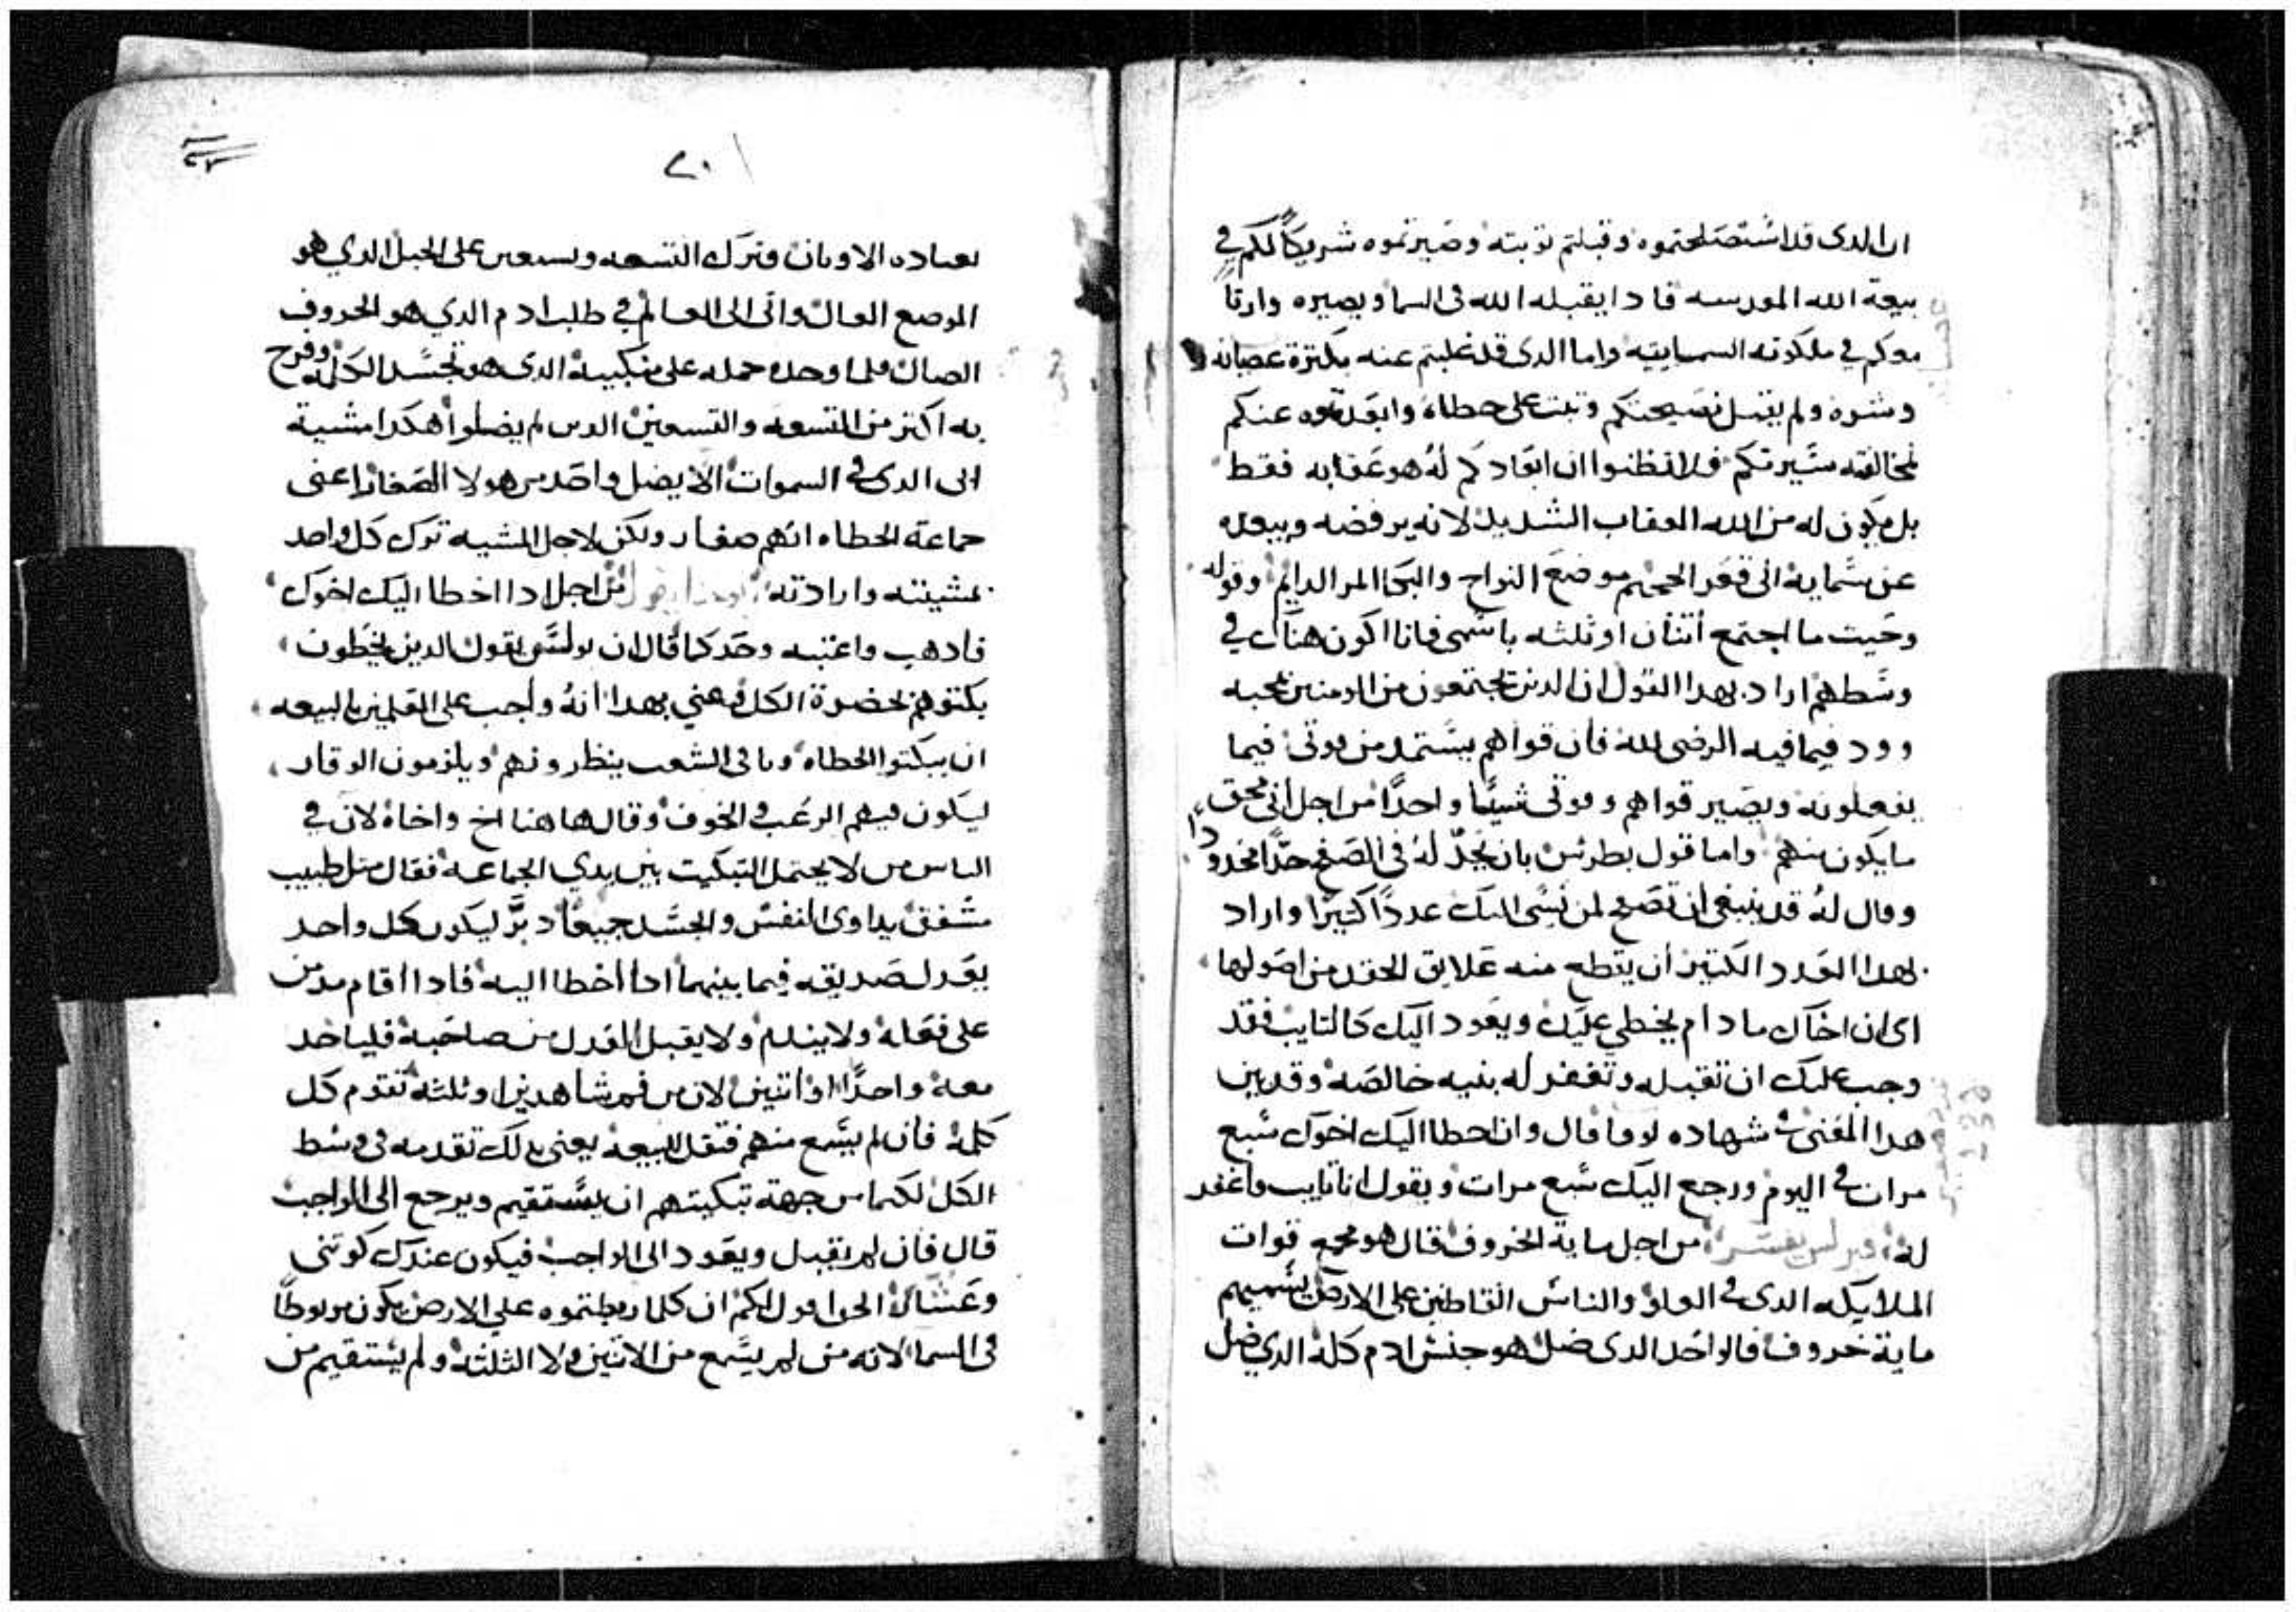 ان الدى قد استصلحتموه وقبلتم توبته وصيرتموه شريكًا لكم في
بيعة الله المقدسه فادا يقبله الله فى السما ويصيره وارثًا
معكم في ملكوته السماييه واما الدى قد غلبتم عنه بكترة عصيانه
وشره ولم يقبل نصيحتكم وتبت على خطاه وابعدتموه عنكم
لمخالفته سيرتكم فلا تظنوا ان ابعادكم له هو عقابه فقط
بل يكون له من الله العقاب الشديد لانه يرفضه ويبعده
عن سمايه الى قعر الجحيم موضع النواح والبكا المر الدايم وقوله
وحيت ما اجتمع اتنان او ثلثه باسمى فانا اكون هناك في
وسطهم اراد بهدا القول ان الدين يجتمعون من المومنين بمحبه
وود فيما فيه الرضى لله فان قواهم يستمد من قوتى فيما
يفعلونه ويصير قواهم وقوتى شيئًا واحدًا من اجل انى محق
ما يكون منهم واما قول بطرس بان يحد له فى الصفح حدًا محدودا
وقال له قد ينبغى ان تصفح لمن يسى اليك عددًا كتيرًا واراد
بهدا العدد الكتير ان يقطع منه علايق الحقد من اصولها
اى ان اخاك ما دام يخطي عليك ويعود اليك كالتايب فقد
وجب عليك ان تقبله وتغفر له بنيه خالصه وقد بين
هدا المعنى شهاده لوقا قال وان اخطا اليك اخوك سبع
مرات في اليوم ورجع اليك سبع مرات ويقول انا تايب فاغفر
له كيرلس يفسر من اجل ماية الخروف قال هو مجمع قوات
الملايكه الدى في العلو والناس القاطنين على الارض يسميهم
ماية خروف فالواحد الدى ضل هو جنس ادم كله الدي ضل
٢٠
بعباده الاوتان وترك التسعه وتسعين على الجبل الدي هو
الموضع العال واتى الى العالم في طلب ادم الدي هو الخروف
الضال فلما وجده حمله على منكبيه الدى هو تجسد الكلمه وفرح
به اكتر من التسعه والتسعين الدين لم يضلوا هكدا مشية
ابى الدى في السموات الا يضل واحد من هولا الصغار اعنى
جماعة الخطاه انهم صغار ولكن لاجل المشيه ترك كل واحد
بمشيته وارادته من اجل ادا اخطا اليك اخوك
فادهب واعتبه وحدكما قال ان بولس يقول الدين يخطون
بكتوهم بحضرة الكل فعني بهدا انه واجب على المعلمين بالبيعه
ان يبكتوا الخطاه وباقى الشعب ينظرونهم ويلزمون الوقار
ليكون فيهم الرعب في الخوف وقال هاهنا اخ واخاه لان في
الناس من لا يحتمل التبكيت بين يدي الجماعه فقال متل طبيب
مشفق يداوى النفس والجسد جميعًا دبر ليكون كل واحد
يعدل صديقه فيما بينهما ادا اخطا اليه فادا اقام مدمن
على فعله ولا يندم ولا يقبل العدل من صاحبه فلياخد
معه واحدًا او اتنين لان من فم شاهدين او ثلثه تقوم كل
كلمه فان لم يسمع منهم فتقل للبيعه يعنى بدلك تقدمه فى وسط
الكل لكيما من جهة تبكيتهم ان يستقيم ويرجع الى الواجب
قال فان لم يقبل ويعود الى الواجب فيكون عندك كوتنى
وعشار الحق اقول لكم ان كلما ربطتموه على الارض يكون مربوطًا
فى السما لانه من لم يسمع من الاتنين ولا الثلثه ولم يستقيم من